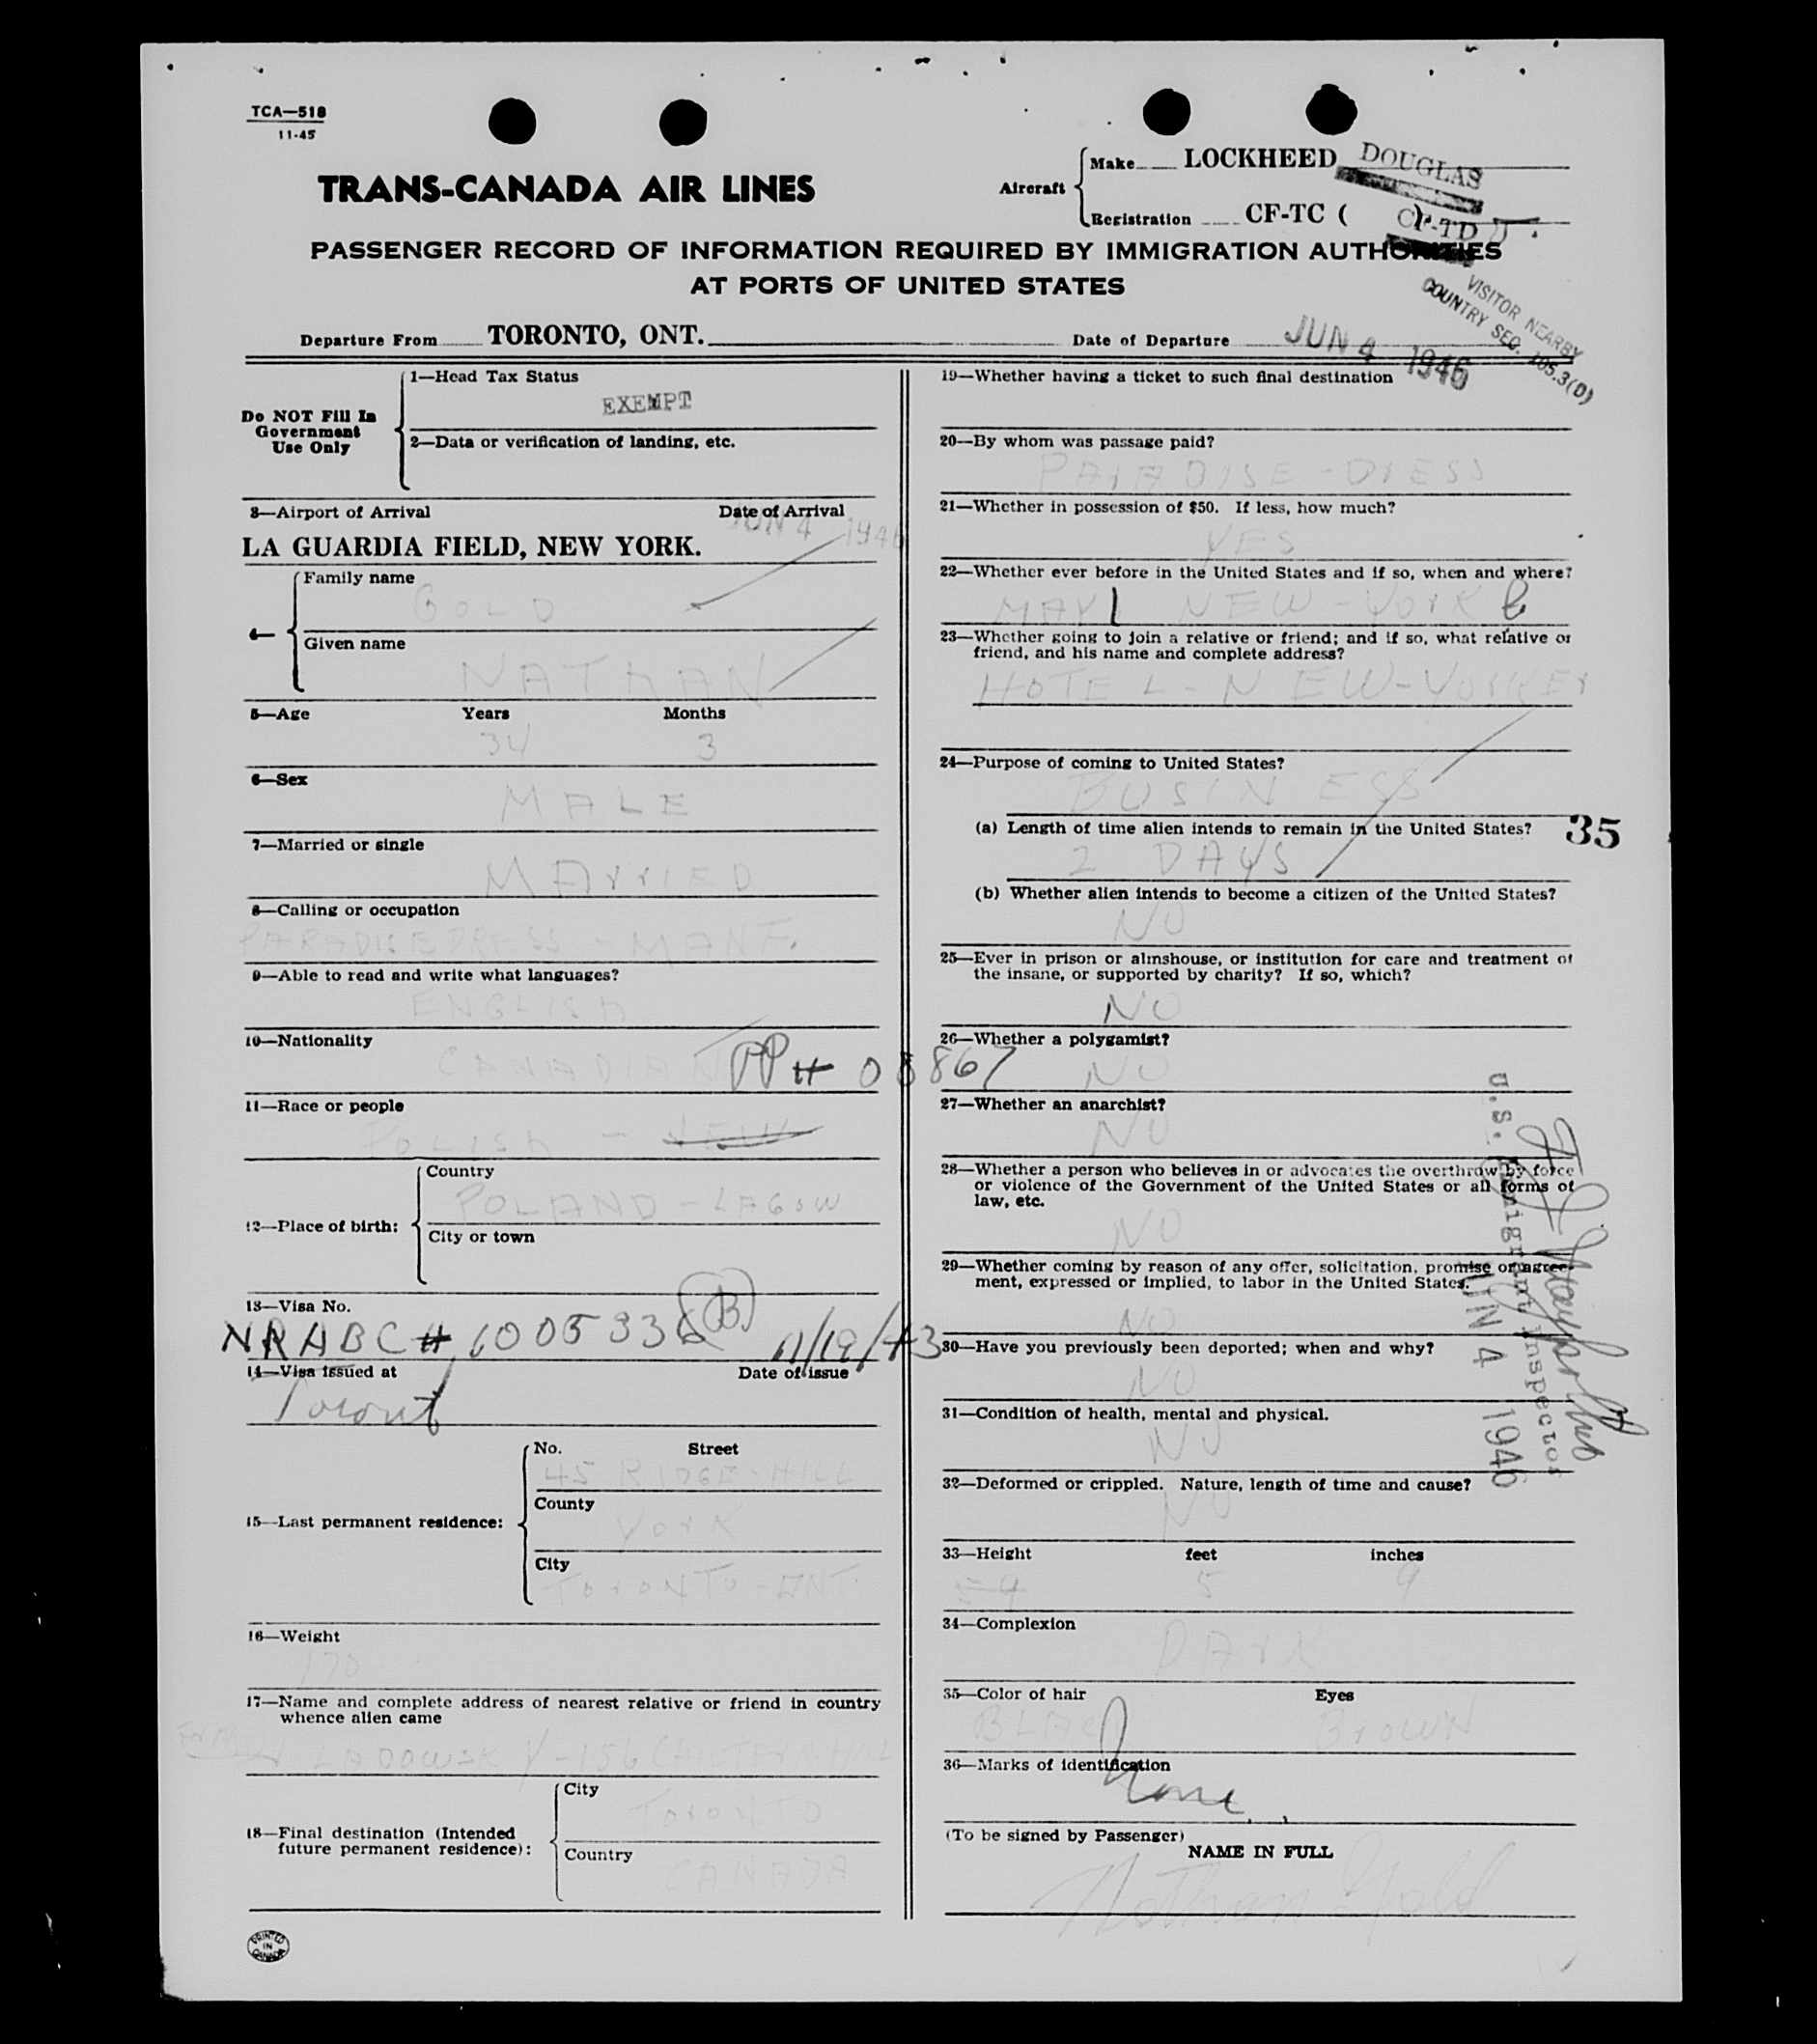 TCA—518
11-45
TRANS-CANADA AIR LINES
Aircraft
Make LOCKHEED DOUGLAS
Registration CF-TC ( ) CF-TD
PASSENGER RECORD OF INFORMATION REQUIRED BY IMMIGRATION AUTHORITIES
AT PORTS OF UNITED STATES
VISITOR NEARBY
COUNTRY SEC. 105.3(D)
Departure From TORONTO, ONT.
Date of Departure JUN 4 1946
Do NOT Fill In
Government
Use Only
1—Head Tax Status
EXEMPT
2—Data or verification of landing, etc.
3—Airport of Arrival Date of Arrival
JUN 4 1946
LA GUARDIA FIELD, NEW YORK.
4—
Family name
GOLD
Given name
NATHAN
5—Age Years Months
34 3
6—Sex
MALE
7—Married or single
MArrIED
8—Calling or occupation
PARADISE DRESS - MANF.
9—Able to read and write what languages?
ENGLISh
10—Nationality
CANADIAN PP # 08867
11—Race or people
POLISh -
12—Place of birth:
Country
POLAND - LAGOW
City or town
13—Visa No.
NRABC# 6005336 (B) 11/19/43
14—Visa issued at Date of issue
Toront
15—Last permanent residence:
No. Street
45 RIDGE-HILL
County
YOrK
City
TOrONTO-ONT.
16—Weight
170
17—Name and complete address of nearest relative or friend in country
whence alien came
LADOWSKY - 156
18—Final destination (Intended
future permanent residence):
City
TOrONTO
Country
CANADA
PRINTED
IN
CANADA
19—Whether having a ticket to such final destination
20—By whom was passage paid?
PArADISE - DrESS
21—Whether in possession of $50. If less, how much?
YES
22—Whether ever before in the United States and if so, when and where?
MAY NEW-YOrK
23—Whether going to join a relative or friend; and if so, what relative or
friend, and his name and complete address?
HOTEL-NEW-YOrKEr
24—Purpose of coming to United States?
BUSINESS
(a) Length of time alien intends to remain in the United States?
35
2 DAYS
(b) Whether alien intends to become a citizen of the United States?
NO
25—Ever in prison or almshouse, or institution for care and treatment of
the insane, or supported by charity? If so, which?
NO
26—Whether a polygamist?
NO
27—Whether an anarchist?
NO
28—Whether a person who believes in or advocates the overthrow by force
or violence of the Government of the United States or all forms of
law, etc.
NO
29—Whether coming by reason of any offer, solicitation, promise or agree-
ment, expressed or implied, to labor in the United States.
NO
30—Have you previously been deported; when and why?
NO
31—Condition of health, mental and physical.
NO
32—Deformed or crippled. Nature, length of time and cause?
NO
U.S. Immigrant Inspector
JUN 4 1946
33—Height feet inches
5 9
34—Complexion
DArK
35—Color of hair Eyes
BLACK BrOWN
36—Marks of identification
None
(To be signed by Passenger)
NAME IN FULL
Nathan Gold